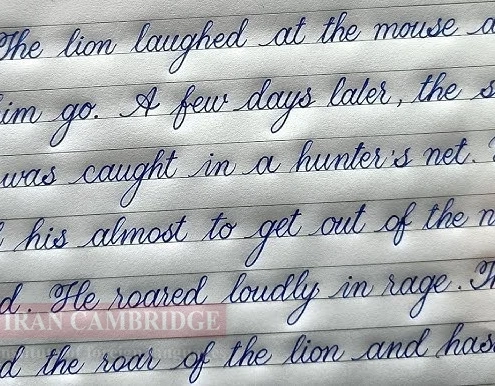 The lion laughed at the mouse a
im go. A few days later, the s
was caught in a hunter's net.
his almost to get out of the n
d. He roared loudly in rage. Th
IRAN CAMBRIDGE
d the roar of the lion and has